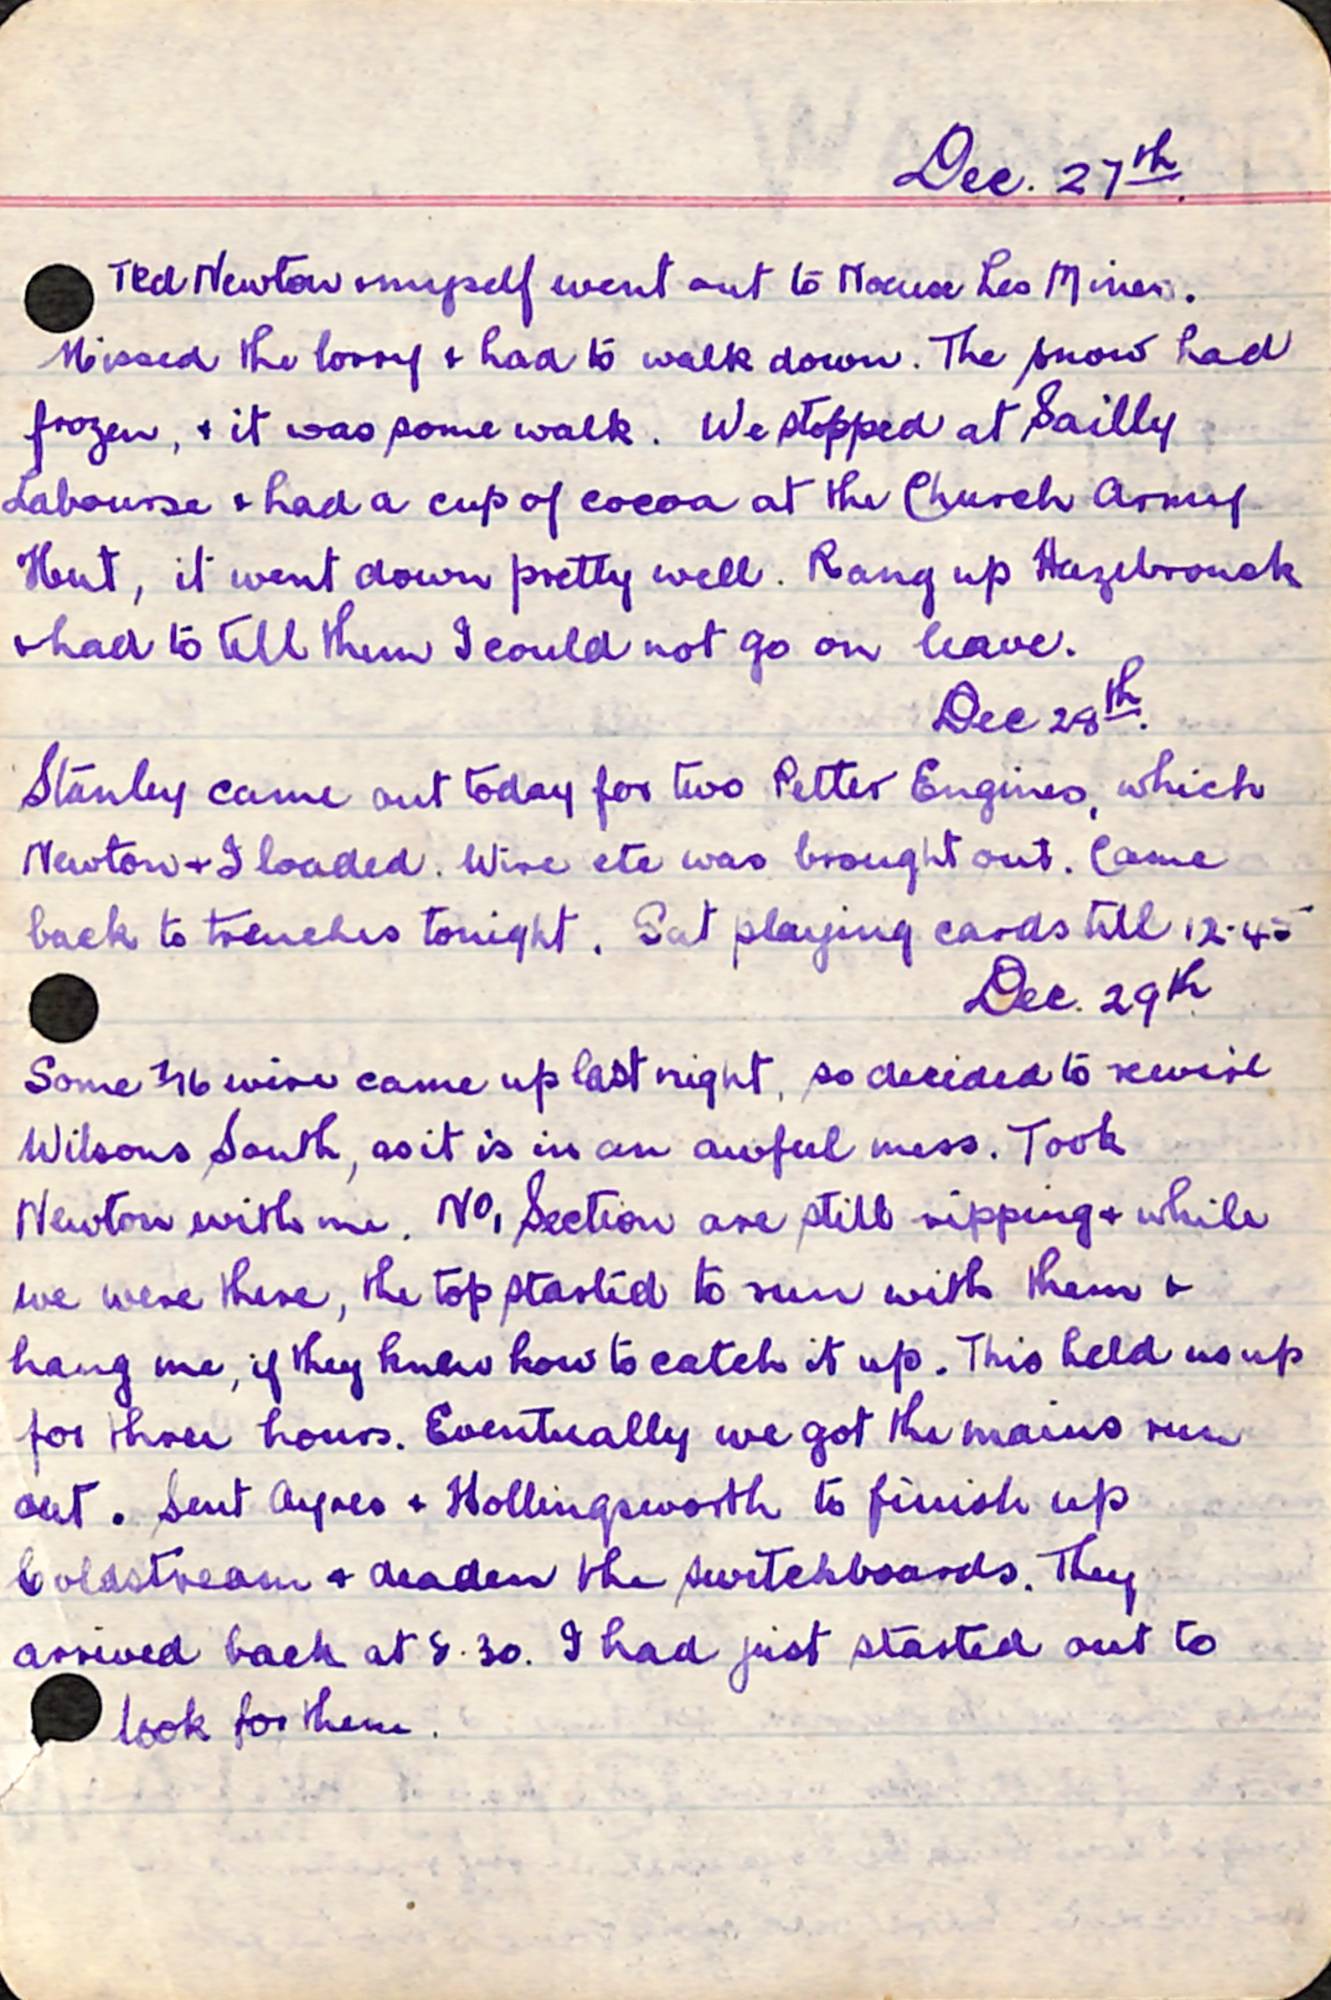 Dec. 27th
Ted Newton & myself went out to Noeux Les Mines.
Missed the lorry & had to walk down. The snow had
frozen, & it was some walk. We stopped at Sailly
Labourse & had a cup of cocoa at the Church Army
Hut, it went down pretty well. Rang up Hazebrouck
& had to tell them I could not go on leave.
Dec 28th.
Stanley came out today for two Petter Engines, which
Newton & I loaded. Wire etc was brought out. Came
back to trenches tonight. Sat playing cards till 12.45
Dec. 29th
Some 7/16 wire came up last night, so decided to rewire
Wilsons South, as it is in an awful mess. Took
Newton with me. No 1 Section are still ripping & while
we were there, the top started to run with them &
hang me, if they knew how to catch it up. This held us up
for three hours. Eventually we got the mains run
out. Sent Ayres & Hollingsworth to finish up
Coldstream & deaden the switchboards. They
arrived back at 8.30. I had just started out to
look for them.